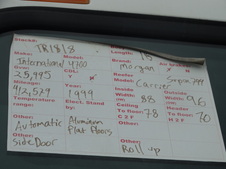 Stock#:
TR1818
Length:
15
Make:
International 4700
Model:
Brand:
Morgan
25,995
GDL:
Y N
Reefer
Model:
Carrier
Supra 744
Mileage:
912,529
Year:
1999
Inside
Width:
88
Outside
Width:
96
Temperature
range:
Elect. Stand
by:
Ceiling
To Floor:
78
Floor
To
70
Other:
Automatic
Other:
Aluminum
Flat Floors
Other:
Side Door
Other:
Roll up